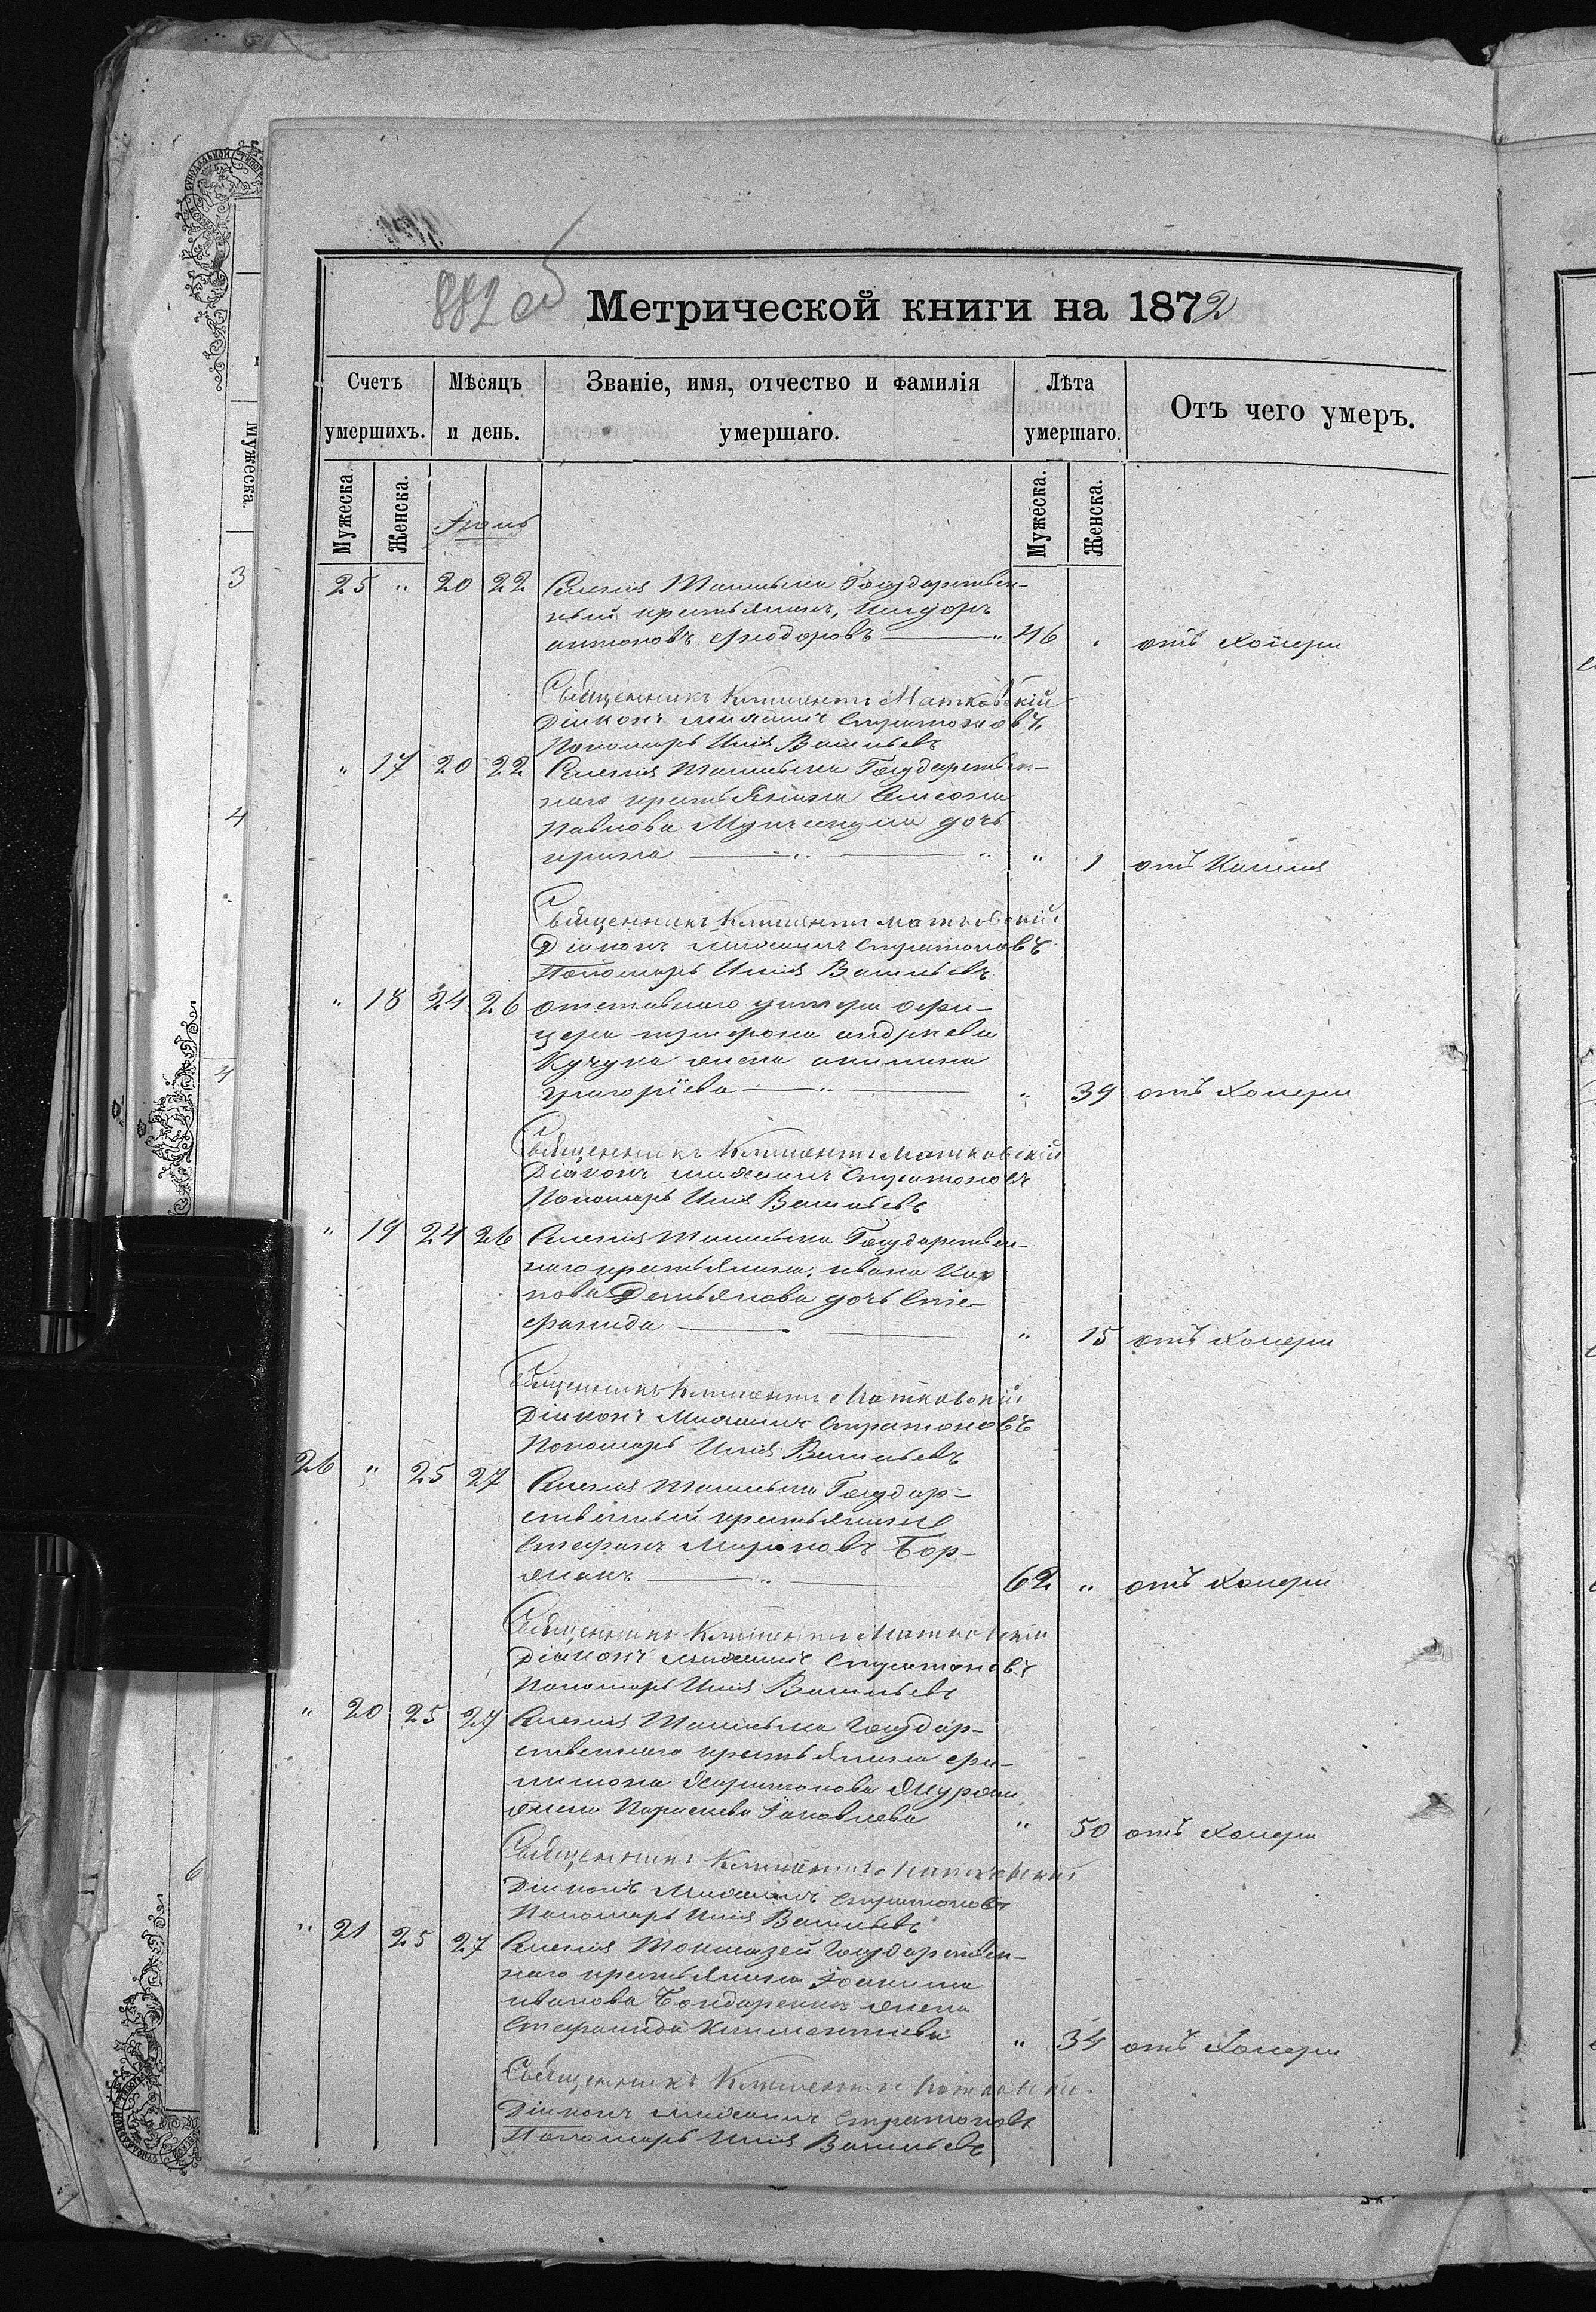 882 об
Метрической книги на 1872
Счетъ умершихъ.
Мѣсяцъ и день.
Званіе, имя, отчество и фамилія умершаго.
Лѣта умершаго.
Отъ чего умеръ.
Мужеска.
Женска.
Мужеска.
Женска.
25 " 20 22 Селенія Государствен-
ный крестьянинъ,
антоновъ Ѳиодоровъ — " 46 . отъ холеры
Священникъ Климентъ Матковскій
Діаконъ Михаилъ Стратоновъ
Пономарь Илія Васильевъ
" 17 20 22 Селенія Государствен-
наго крестьянина Симеона
Павлова дочь
ирина — " — " " 1 отъ Кашля
Священникъ Климентъ Матковскій
Діаконъ Михаилъ Стратоновъ
Пономарь Илія Васильевъ
" 18 24 26 отставнаго унтеръ офи-
цера трифона андреева
Кучука жена акилина
григоріева — " — " 39 отъ холеры
Священникъ Климентъ Матковскій
Діаконъ Михаилъ Стратоновъ
Пономарь Илія Васильевъ
" 19 24 26 Селенія Государствен-
наго крестьянина, ивана Кар
пова Демьянова дочь Сте-
фанида — " 15 отъ холеры
Священникъ Климентъ Матковскій
Діаконъ Михаилъ Стратоновъ
Пономарь Илія Васильевъ
26 " 25 27 Селенія Государ-
ственный крестьянинъ
Стефанъ Мироновъ Бор-
— " — 62 " отъ холеры
Священникъ Климентъ Матковскій
Діаконъ Михаилъ Стратоновъ
Пономарь Илія Васильевъ
" 20 25 27 Селенія Государ-
ственнаго крестьянина фи-
лимона Харитонова
жена Параскева Іаковлева " 50 отъ холеры
Священникъ Климентъ Матковскій
Діаконъ Михаилъ Стратоновъ
Пономарь Илія Васильевъ
" 21 25 27 Селенія Государствен-
наго крестьянина
иванова Бондаренка жена
Стефанида Климентіева " 34 отъ холеры
Священникъ Климентъ Матковскій
Діаконъ Михаилъ Стратоновъ
Пономарь Илія Васильевъ
Мужеска.
3
4
4
6